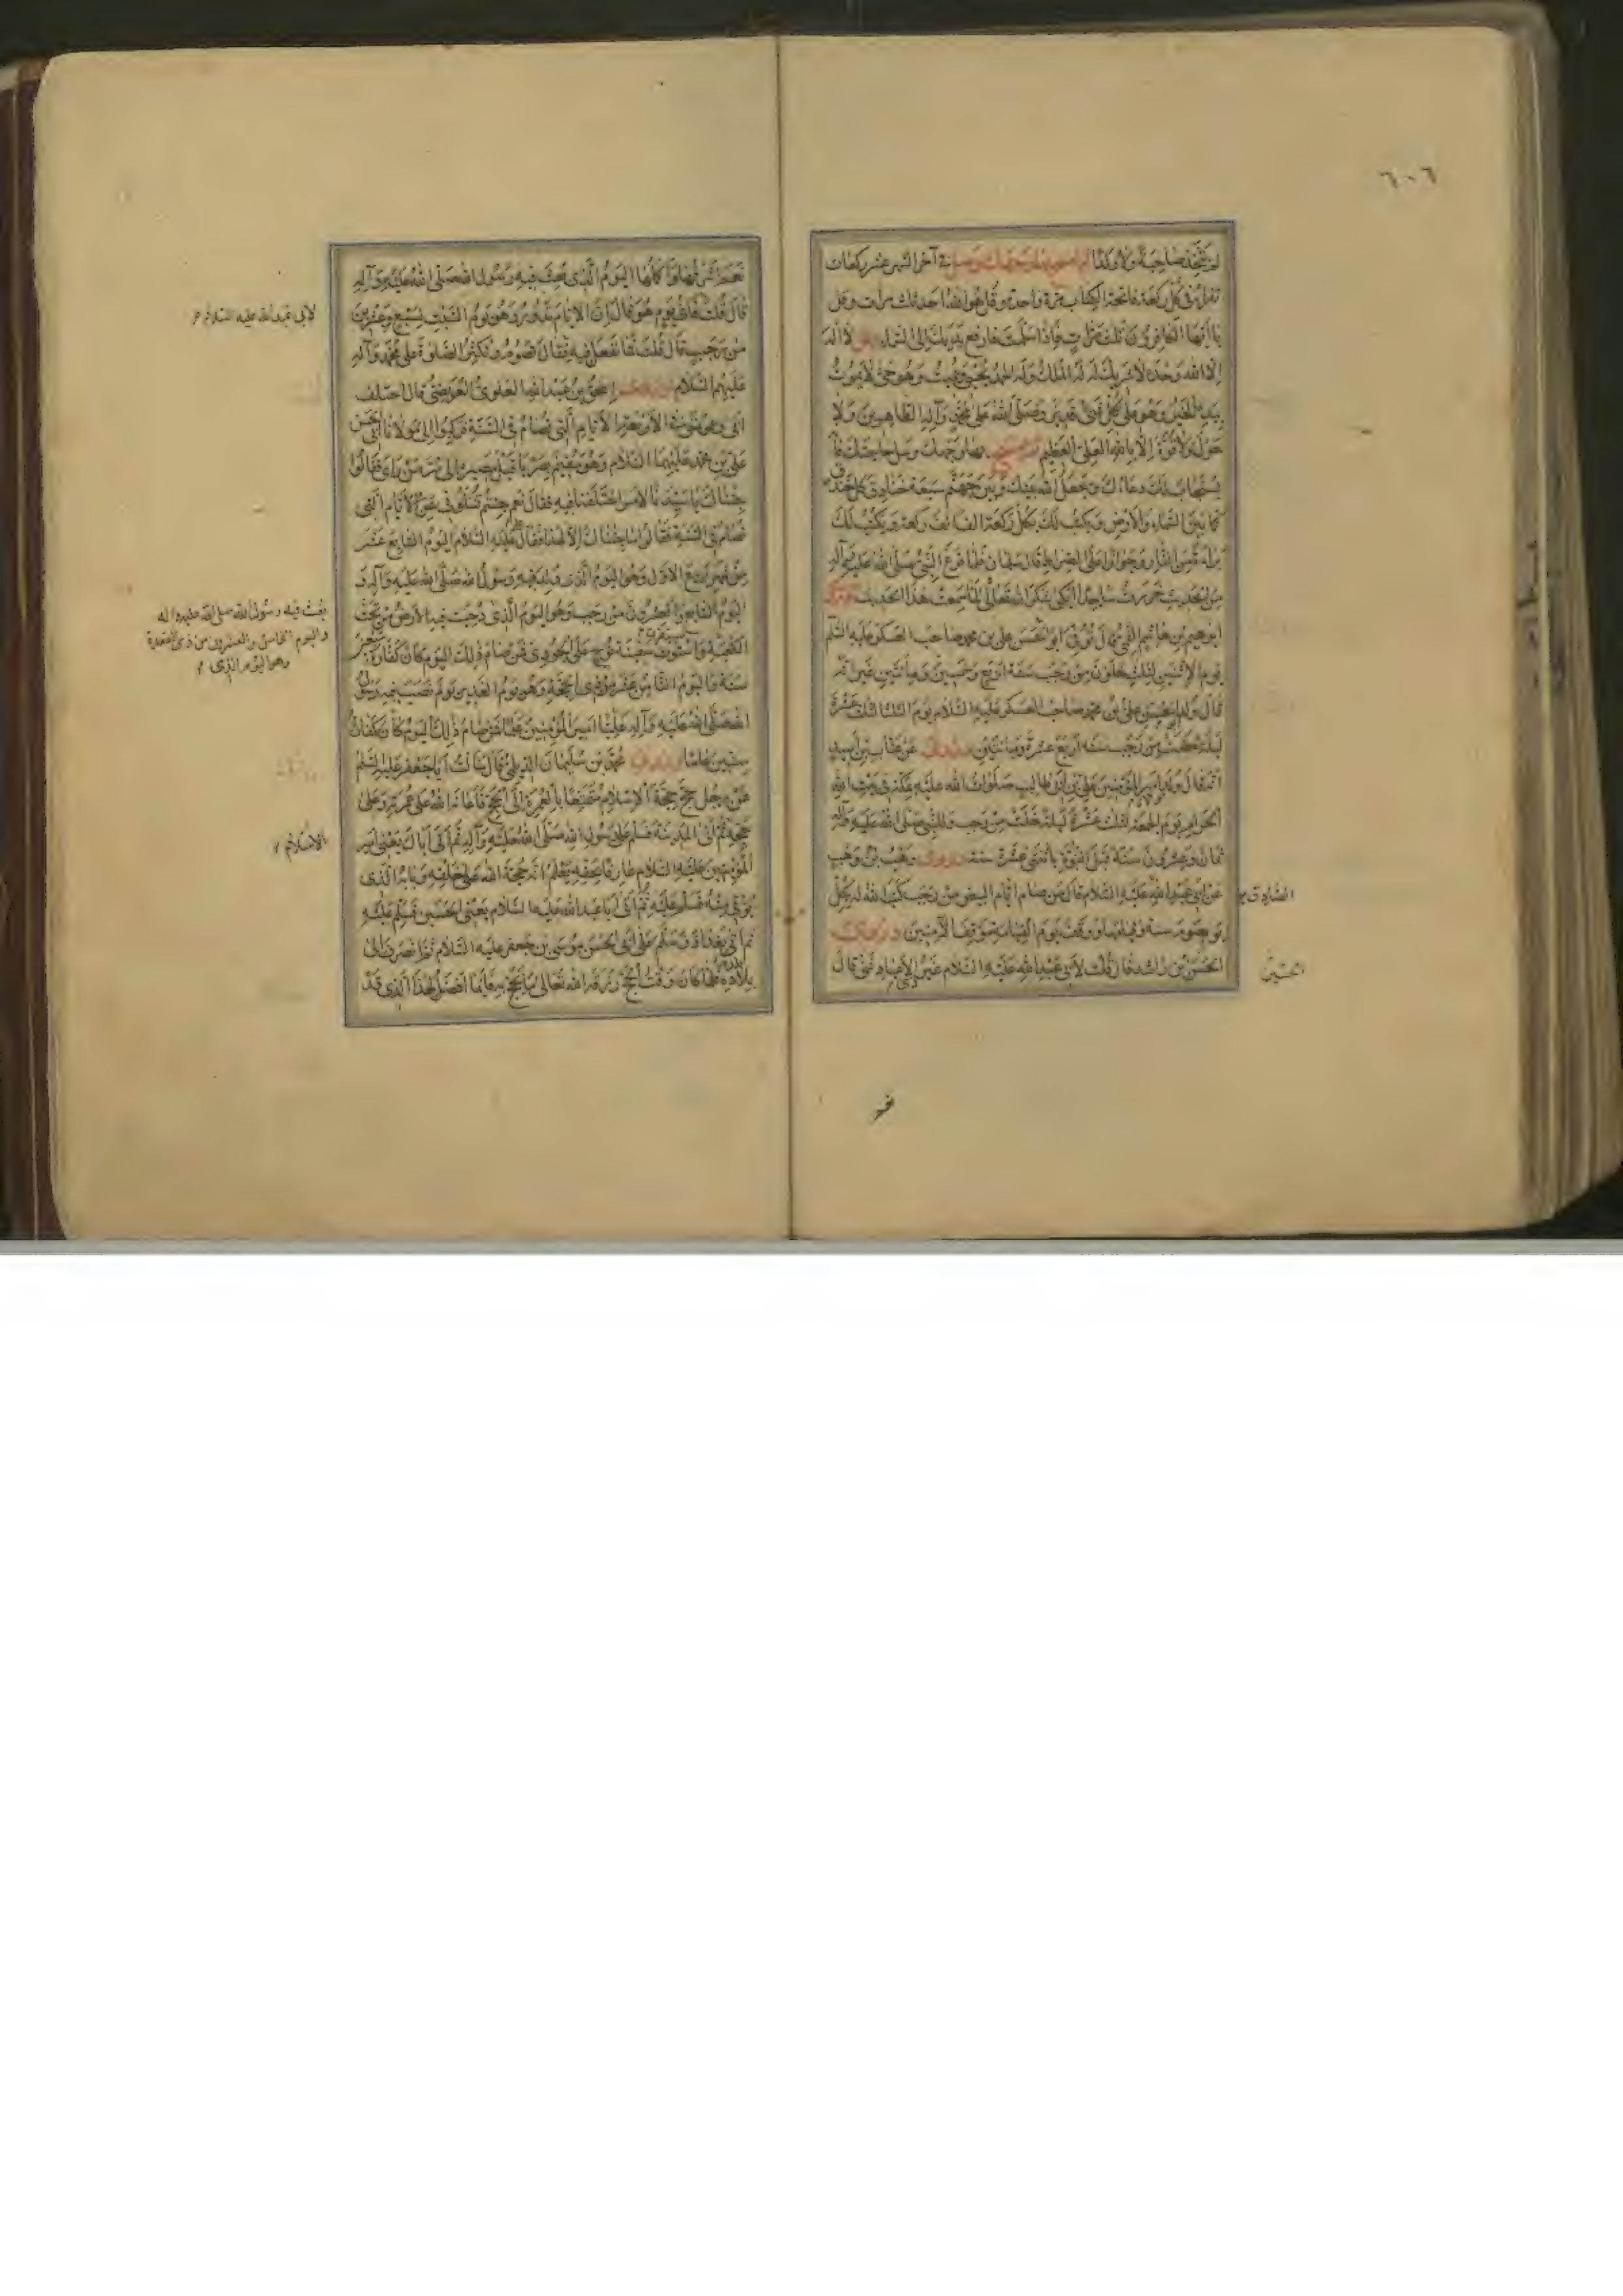 ٦٠٦
لم يتخذ صاحبة ولا ولدا ثم امسح بهما وجهك وصل في آخر الشهر عشر ركعات
تقرأ في كل ركعة فاتحة الكتاب مرة واحدة وقل هو الله احد ثلث مرات وقل
يا أيها الكافرون ثلث مرات فإذا سلمت فارفع يديك إلى السماء وقل لا اله
الا الله وحده لا شريك له له الملك وله الحمد يحيي ويميت وهو حي لا يموت
بيده الخير وهو على كل شيء قدير وصلى الله على محمد وآله الطاهرين ولا
حول ولا قوة إلا بالله العلي العظيم ثم امسح بهما وجهك وسل حاجتك فانه
يستجاب لك دعاؤك ويجعل الله بينك وبين جهنم سبعة خنادق كل خندق
كما بين السماء والأرض ويكتب لك بكل ركعة الف الف ركعة ويكتب لك
براءة من النار وجوازا على الصراط قال سلمان فلما فرغ النبي صلى الله عليه وآله
من الحديث خررت ساجدا ابكي شكرا لله تعالى لما سمعت هذا الحديث وروى
ابرهيم بن هاشم القمي قال توفي ابو الحسن علي بن محمد صاحب العسكر عليه السلم
يوم الإثنين لثلث خلون من رجب سنة اربع وخمسين ومأتين
قال ولد ابو الحسن علي بن محمد صاحب العسكر عليه السلام يوم الثلثا لثلث عشرة
ليلة مضت من رجب سنة اربع عشرة ومأتين وروى عن عتاب بن اسيد
انه قال ولد امير المؤمنين علي بن ابي طالب صلوات الله عليه بمكة في بيت الله
الحرام يوم الجمعة لثلث عشرة ليلة خلت من رجب وللنبي صلى الله عليه وآله
ثمان وعشرون سنة قبل النبوة باثنتي عشرة سنة وروى وهب بن وهب
عن ابي عبد الله عليه السلام قال من صام ايام البيض من رجب كتب الله له بكل
يوم صوم سنة وقيامها ووقف يوم القيامة موقف الآمنين وروى
الحسن بن راشد قال قلت لأبي عبد الله عليه السلام غير الأعياد شيء قال
الصادق
الحسين
نعم اشرفها واكملها اليوم الذي بعث فيه رسول الله صلى الله عليه وآله
قال قلت فاي يوم هو قال إن الايام تدور وهو يوم السبت لسبع وعشرين
من رجب قال قلت فما نفعل فيه فقال تصوم وتكثر الصلوة على محمد وآله
عليهم السلام وروى اسحق بن عبد الله العلوي العريضي قال اختلف
ابي وعمومتي الأربعة الأيام التي تصام في السنة فركبوا إلى مولانا ابي الحسن
علي بن محمد عليهما السلام وهو مقيم بصريا قبل مصيره إلى سر من رأى فقالوا
جئناك يا سيدنا لامر اختلفنا فيه فقال نعم جئتم تسئلوني عن الأيام التي
تصام في السنة فقالوا ما جئناك إلا لهذا فقال عليه السلام اليوم السابع عشر
من شهر ربيع الاول وهو اليوم الذي ولد فيه رسول الله صلى الله عليه وآله و
اليوم السابع والعشرون من رجب وهو اليوم الذي دحيت فيه الأرض من تحت
الكعبة واستوت سفينة نوح على الجودي فمن صام ذلك اليوم كان كفارة سبعين
سنة واليوم الثامن عشر من ذي الحجة وهو يوم الغدير يوم نصب فيه رسول
الله صلى الله عليه وآله عليا امير المؤمنين علما فمن صام ذلك اليوم كان كفارة
ستين عاما وروى محمد بن سليمان الديلمي قال سالت ابا جعفر عليه السلم
عن رجل حج حجة الإسلام متمتعا بالعمرة الى الحج فاعانه الله على عمرته وعلى
حجه ثم اتى المدينة فسلم على رسول الله صلى الله عليه وآله ثم اتى اباك يعني امير
المؤمنين عليه السلام عارفا بحقه يعلم انه حجة الله على خلقه وبابه الذي
يؤتى منه فسلم عليه ثم اتى ابا عبد الله عليه السلام يعني الحسين فسلم عليه
ثم اتى بغداد وسلم على ابي الحسن موسى بن جعفر عليه السلام ثم انصرف الى
بلاده فلما كان وقت الحج رزقه الله تعالى ما يحج به فايهما افضل لهذا الذي قد
لابي عبد الله عليه السلام
بعث فيه رسول الله صلى الله عليه واله
واليوم الخامس والعشرون من ذي القعدة
وهو اليوم الذي
الاسلام